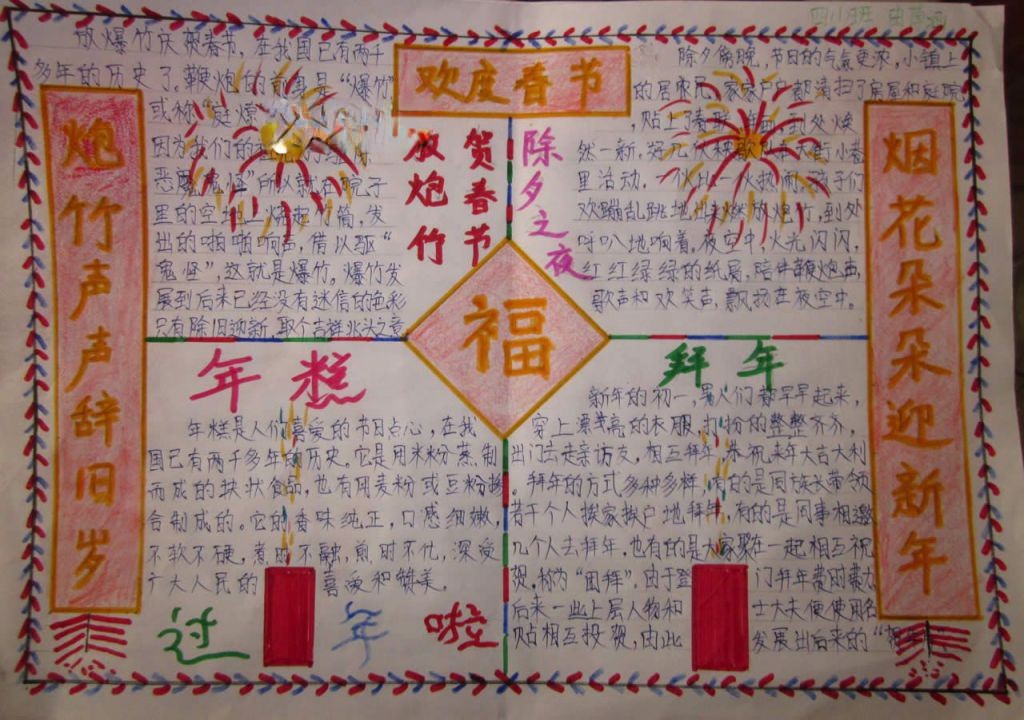 四八班
欢度春节
炮竹声声辞旧岁
烟花朵朵迎新年
福
贺春节
放炮竹
放爆竹庆祝春节，在我国已有两千
多年的历史了。鞭炮的前身是“爆竹”
或称“庭燎
因为我们的
恶魔鬼怪”所以就在院子
里的空地上烧起竹筒，发
出的啪啪响声，借以驱“
鬼怪”，这就是爆竹。爆竹发
展到后来已经没有迷信的色彩
只有除旧迎新，取个吉祥兆头之意
除夕之夜
除夕傍晚，节日的气氛更浓，小镇上
的居民，家家户户都清扫了房屋和庭院
，贴上了春联、年画，到处焕
然一新，好几伙秧歌队在大街小巷
里活动，一伙比一伙热闹，孩子们
欢蹦乱跳地出来燃放炮竹，到处
呼叭地响着，夜空中，火光闪闪，
红红绿绿的纸屑，陪伴鞭炮声，
歌声和欢笑声，飘扬在夜空中。
年糕
年糕是人们喜爱的节日点心，在我
国已有两千多年的历史。它是用米粉蒸制
而成的块状食品，也有用麦粉或豆粉掺
合制成的。它的香味纯正，口感细嫩，
不软不硬，煮时不融，煎时不化，深受
广大人民的喜爱和赞美。
过年啦
拜年
新年的初一，人们都早早起来，
穿上漂亮的衣服，打扮的整整齐齐，
出门去走亲访友，相互拜年，恭祝来年大吉大利
。拜年的方式多种多样，有的是同族长带领
若干个人挨家挨户地拜年，有的是同事相邀
几个人去拜年，也有的是大家聚在一起相互祝
贺，称为“团拜”。由于登门拜年费时费力
后来一些上层人物和士大夫便使用名
贴相互投贺，由此发展出后来的“